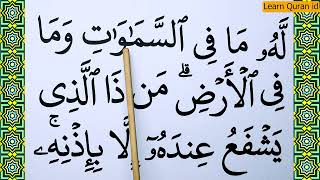 Learn Quran id
لَهُۥ مَا فِى ٱلسَّمَـٰوَٰتِ وَمَا
فِى ٱلْأَرْضِ ۗ مَن ذَا ٱلَّذِى
يَشْفَعُ عِندَهُۥٓ إِلَّا بِإِذْنِهِۦ ۚ